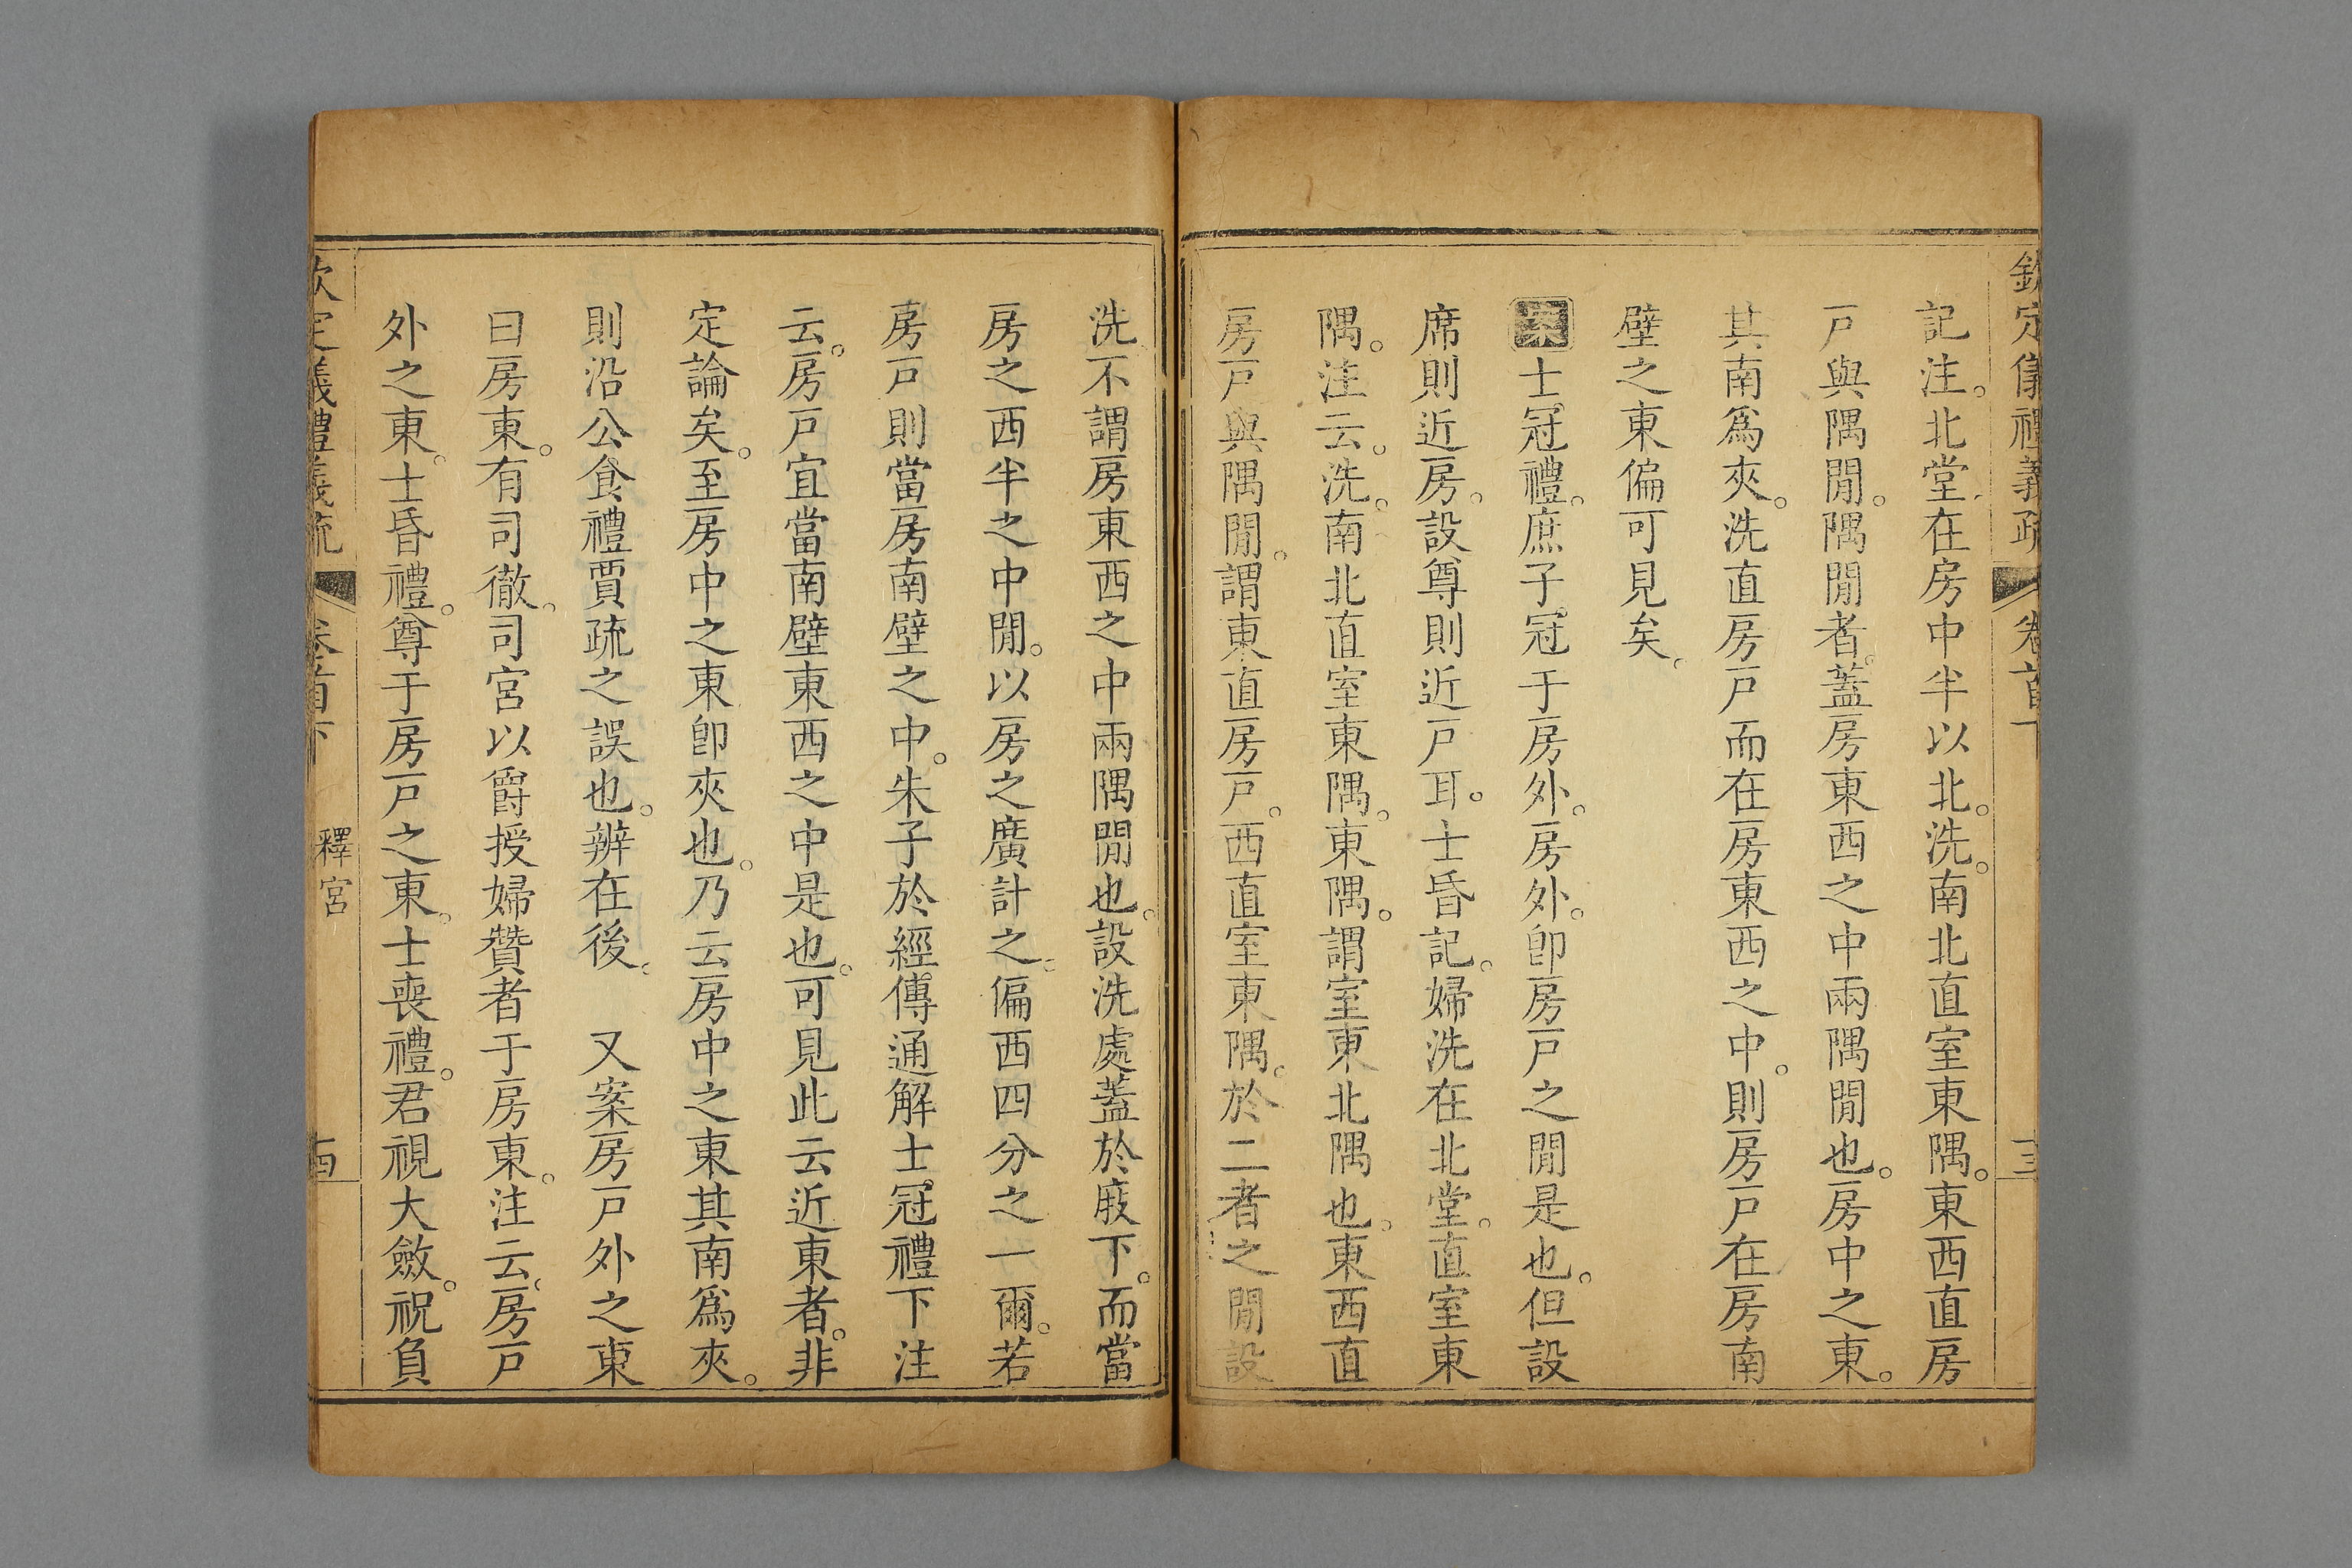 欽定儀禮義疏 卷首下 十三
記注。北堂在房中半以北。洗。南北直室東隅。東西直房
戶與隅閒。隅閒者。蓋房東西之中兩隅閒也。房中之東。
其南爲夾。洗直房戶而在房東西之中。則房戶在房南
壁之東偏可見矣。
案士冠禮。庶子冠于房外。房外。卽房戶之閒是也。但設
席則近房。設尊則近戶耳。士昏記。婦洗在北堂。直室東
隅。注云。洗。南北直室東隅。東隅。謂室東北隅也。東西直
房戶與隅閒。謂東直房戶。西直室東隅。於二者之閒設
洗不謂房東西之中兩隅閒也。設洗處蓋於庪下。而當
房之西半之中閒。以房之廣計之。偏西四分之一爾。若
房戶則當房南壁之中。朱子於經傳通解士冠禮下注
云。房戶宜當南壁東西之中是也。可見此云近東者。非
定論矣。至房中之東卽夾也。乃云房中之東其南爲夾。
則沿公食禮賈疏之誤也。辨在後。 又案房戶外之東
曰房東。有司徹。司宮以爵授婦贊者于房東。注云。房戶
外之東。士昏禮。尊于房戶之東。士喪禮。君視大斂。祝負
欽定儀禮義疏 卷首下 釋宮 十四